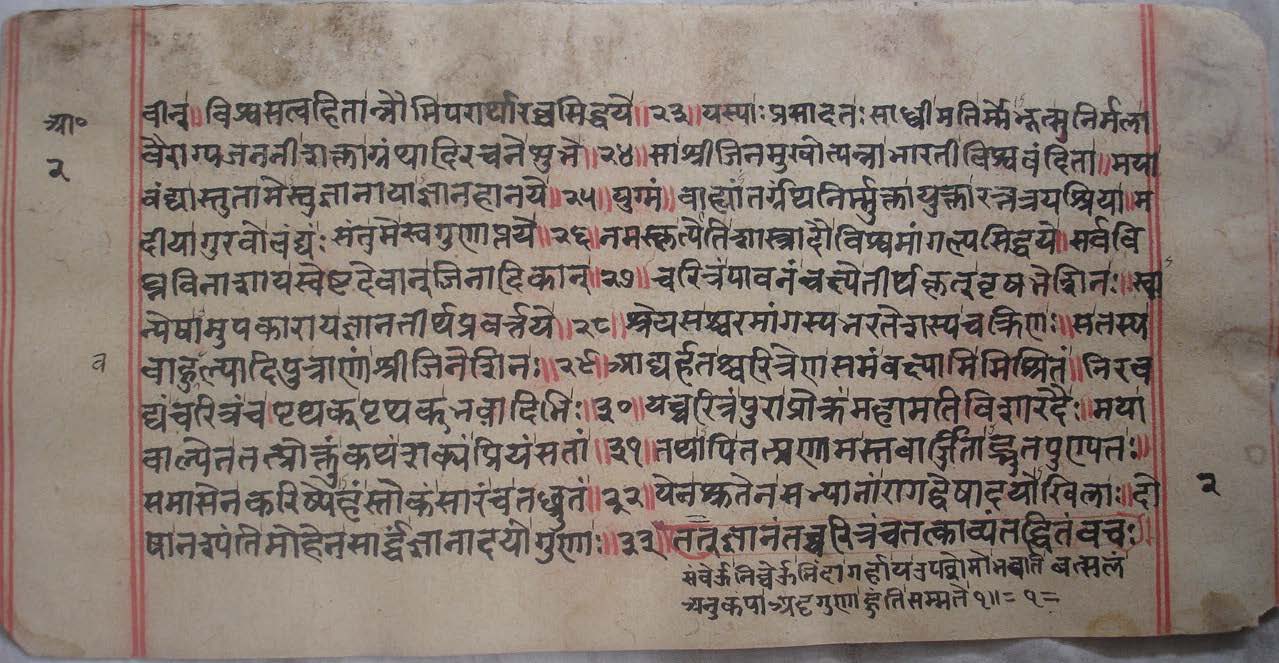 आ०
२
वीन्॥ विश्वसत्वहितान्नौमिपरार्थारब्धसिद्धये॥२३॥यस्याःप्रसादतःसाध्वीमतिर्मेभूत्सुनिर्मला
वैराग्यजननीशक्ताग्रंथादिरचनेशुभे॥२४॥साश्रीजिनमुखोत्पन्नाभारतीविश्ववंदिता॥मया
वंद्यास्तुतामेस्तुज्ञानायाज्ञानहानये॥२५॥युग्मं॥वाह्यांतर्ग्रंथनिर्मुक्तायुक्तारत्नत्रयश्रिया॥म
दीयागुरवोवंद्याःसंतुमेस्वगुणाप्तये॥२६॥नमस्कृत्येतिशास्त्रादौविश्वमांगल्यसिद्धये॥सर्ववि
घ्नविनाशायस्वेष्टदेवान्जिनादिकान्॥२७॥चरित्रंपावनंवक्ष्येतीर्थकृत्वृषभेशिनः॥स्वा
न्येषामुपकारायज्ञानतीर्थप्रवर्त्तये॥२८॥श्रेयसश्चरमांगस्यभरतेशस्यचक्रिणः॥सतस्य
वाहुल्यादिपुत्राणांश्रीजिनेशिनः॥२९॥आद्यर्हतश्चरित्रेणसमंवक्ष्यामिमिश्रितं॥निरव
द्यंचरित्रंचपृथक्पृथक्भवादिभिः॥३०॥यच्चरित्रंपुराप्रोक्तंमहामतिविशारदैः॥मया
वाल्पेनतत्प्रोक्तुंकथंशक्यंप्रियंसतां॥३१॥तथापितत्प्रणामस्तवार्ज्जिताद्भुतपुण्यतः॥
समासेनकरिष्येहंस्तोकंसारंचतध्रुतं॥३२॥येनश्रुतेनसभ्यानांरागद्वेषादयोखिलाः॥दो
षानश्यंतिमोहेनसार्द्धंज्ञानादयोगुणाः॥३३॥तत्ज्ञानंतच्चरित्रंचतत्काव्यंतद्धितंवचः
संवेऊनिव्वेऊनिंदागर्हाय उपशमोभवति वत्सलं
अनुकंपा अट्ठगुणा हुंतिसम्मत्ते१॥=१=
२